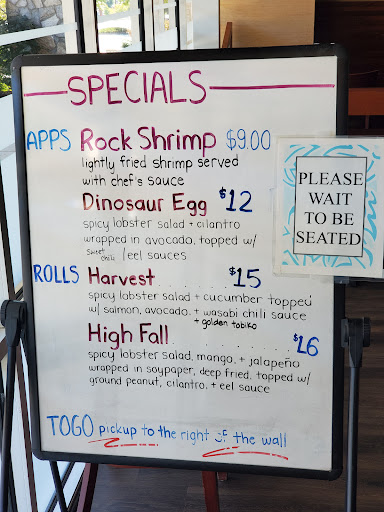 SPECIALS
APPS Rock Shrimp $9.00
lightly fried shrimp served
with chef's sauce
Dinosaur Egg $12
spicy lobster salad + cilantro
wrapped in avocado, topped w/
sweet chili / eel sauces
ROLLS Harvest $15
spicy lobster salad + cucumber topped
w/ salmon, avocado, + wasabi chili sauce
+ golden tobiko
High Fall $16
spicy lobster salad, mango, + jalapeño
wrapped in soypaper, deep fried, topped w/
ground peanut, cilantro, + eel sauce
TOGO pickup to the right of the wall
PLEASE
WAIT
TO BE
SEATED